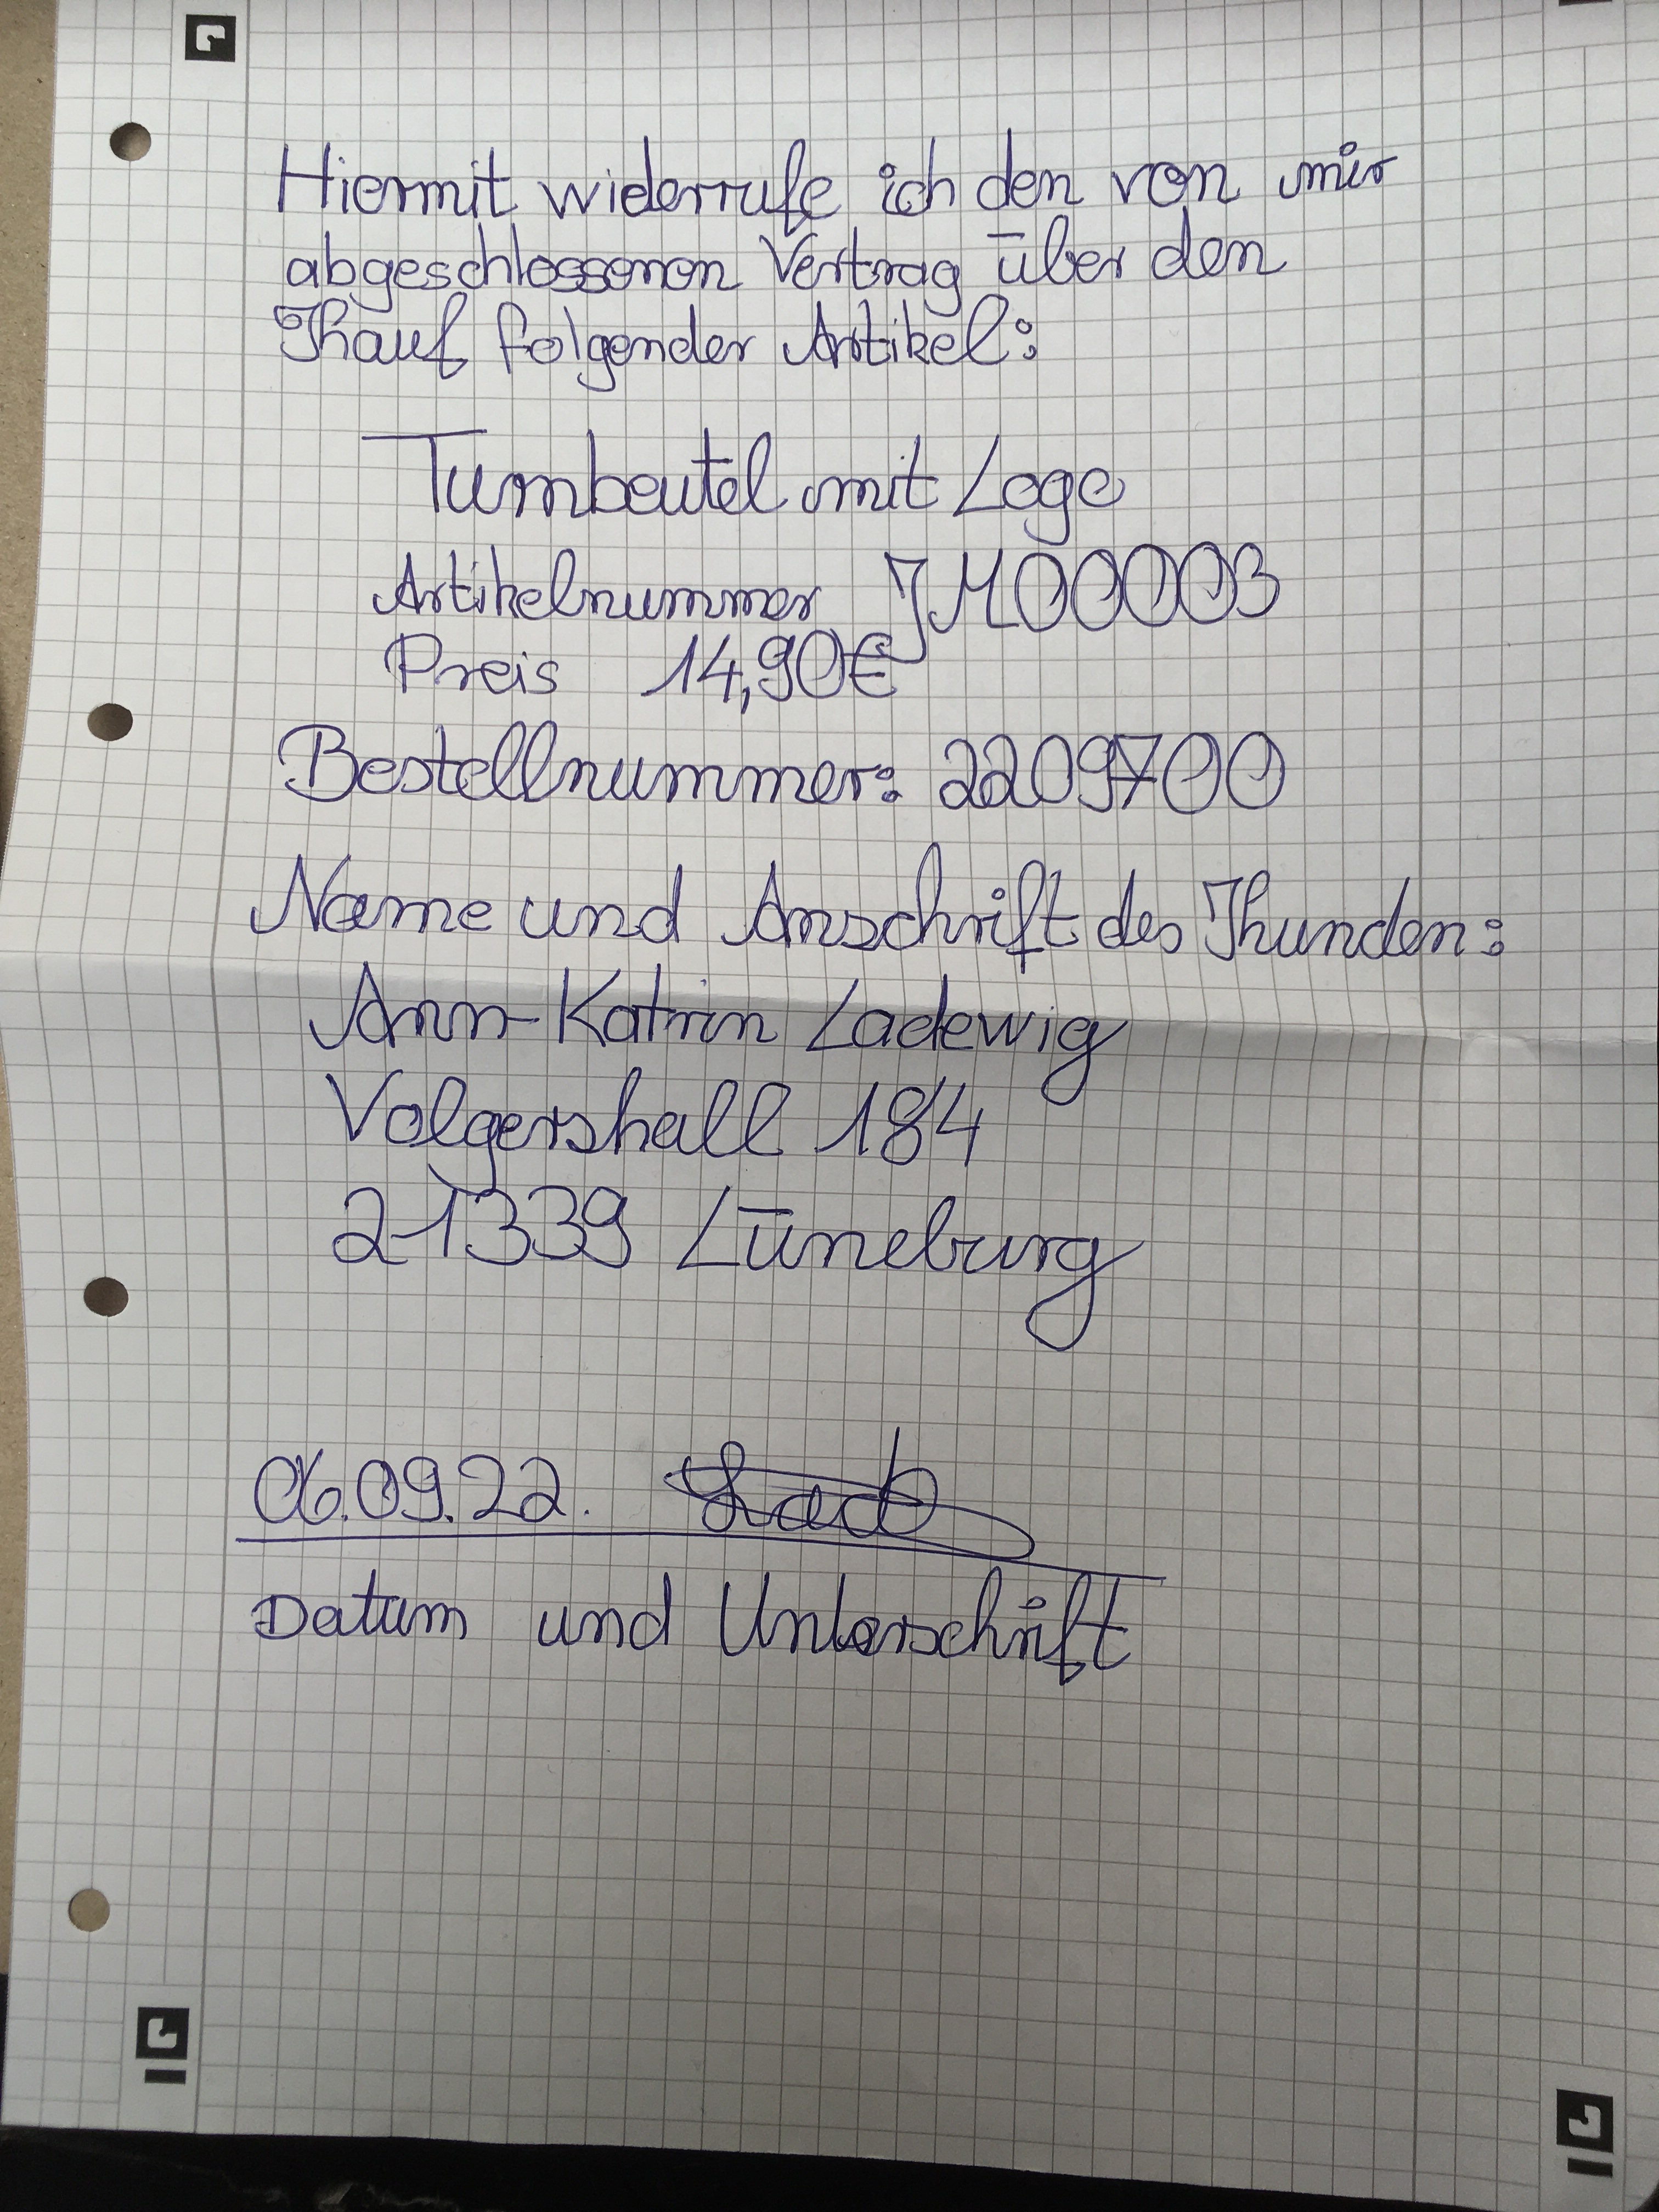 Hiermit widerrufe ich den von mir
abgeschlossenen Vertrag über den
Kauf folgender Artikel:
Turnbeutel mit Logo
Artikelnummer JM00003
Preis 14,90€
Bestellnummer: 2209700
Name und Anschrift des Kunden:
Ann-Katrin Ladewig
Volgershall 184
21339 Lüneburg
06.09.22.
Datum und Unterschrift